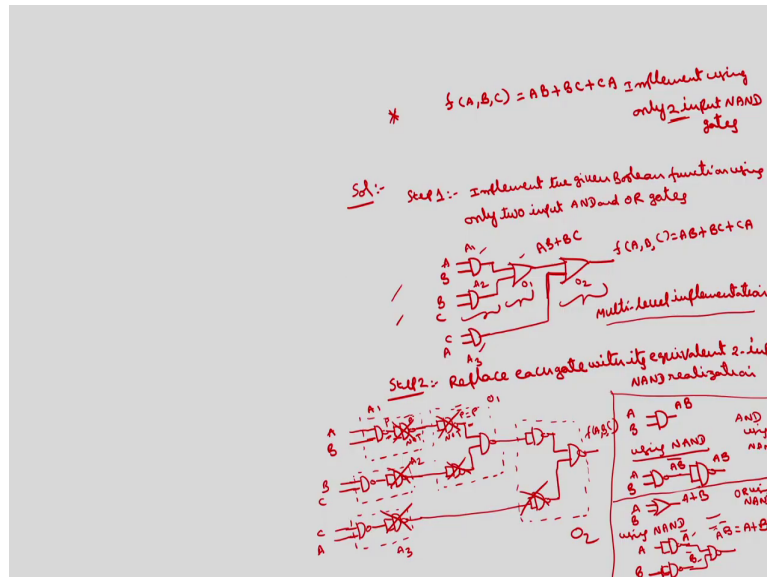 * f(A,B,C) = AB+BC+CA Implement using
only 2 input NAND
gates
Sol:- Step 1:- Implement the given Boolean function using
only two input AND and OR gates
A1
A
B
AB+BC
f(A,B,C)=AB+BC+CA
A2
B
C
O1
O2
C
A
A3
Multi-level implementation
Step2:- Replace each gate with its equivalent 2-in
NAND realization
A1
O1
A
B
P
P
NOT
P=P
NOT
f(A,B,C)
A2
B
C
C
A
A3
O2
A
B
AB
AND
usin
NAN
using NAND
A
B
AB
AB
A
B
A+B
OR usin
NAND
using NAND
A
A
AB = A+B
B
B